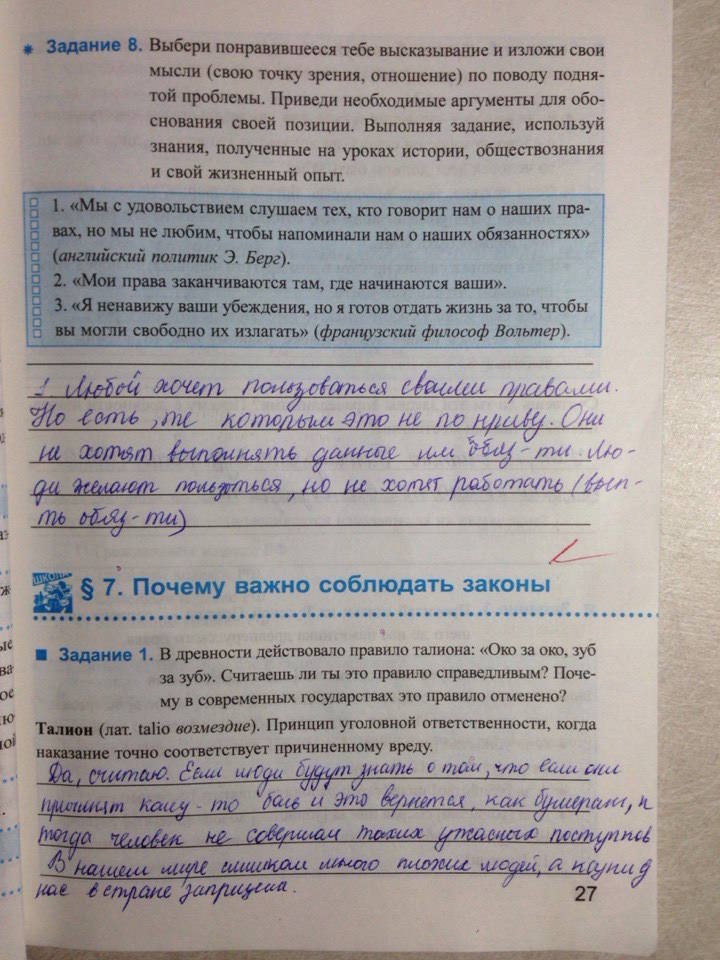 Задание 8. Выбери понравившееся тебе высказывание и изложи свои
мысли (свою точку зрения, отношение) по поводу подня-
той проблемы. Приведи необходимые аргументы для обо-
снования своей позиции. Выполняя задание, используй
знания, полученные на уроках истории, обществознания
и свой жизненный опыт.
1. «Мы с удовольствием слушаем тех, кто говорит нам о наших пра-
вах, но мы не любим, чтобы напоминали нам о наших обязанностях»
(английский политик Э. Берг).
2. «Мои права заканчиваются там, где начинаются ваши».
3. «Я ненавижу ваши убеждения, но я готов отдать жизнь за то, чтобы
вы могли свободно их излагать» (французский философ Вольтер).
1 Любой хочет пользоваться своими правами.
Но есть, те которым это не по нраву. Они
не хотят выполнять данные им обяз-ти. Лю-
ди желают, но не хотят работать (вып-
ть обяз-ти)
ШКОЛА
§ 7. Почему важно соблюдать законы
Задание 1. В древности действовало правило талиона: «Око за око, зуб
за зуб». Считаешь ли ты это правило справедливым? Поче-
му в современных государствах это правило отменено?
Талион (лат. talio возмездие). Принцип уголовной ответственности, когда
наказание точно соответствует причиненному вреду.
Да, считаю. Если люди будут знать о том, что если они
кому-то боль и это вернется, как бумеранг,
тогда человек не совершал таких ужасных поступков
В нашем мире слишком много плохих людей, а
нас в стране запрещена.
27